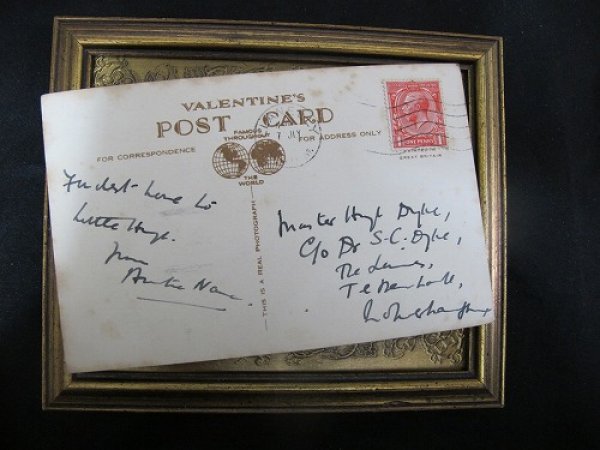 VALENTINE'S
POST CARD
FAMOUS THROUGHOUT
THE WORLD
FOR CORRESPONDENCE
FOR ADDRESS ONLY
THIS IS A REAL PHOTOGRAPH
ONE PENNY
GREAT BRITAIN
7 JLY
Fondest love to
Little Hugh.
from
Auntie
Master Hugh Dyke,
C/o Dr S.C. Dyke,
The
Tettenhall,
Wolverhampton